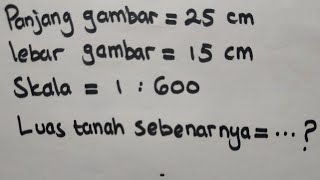 Panjang gambar = 25 cm
lebar gambar = 15 cm
Skala = 1 : 600
Luas tanah sebenarnya = ... ?